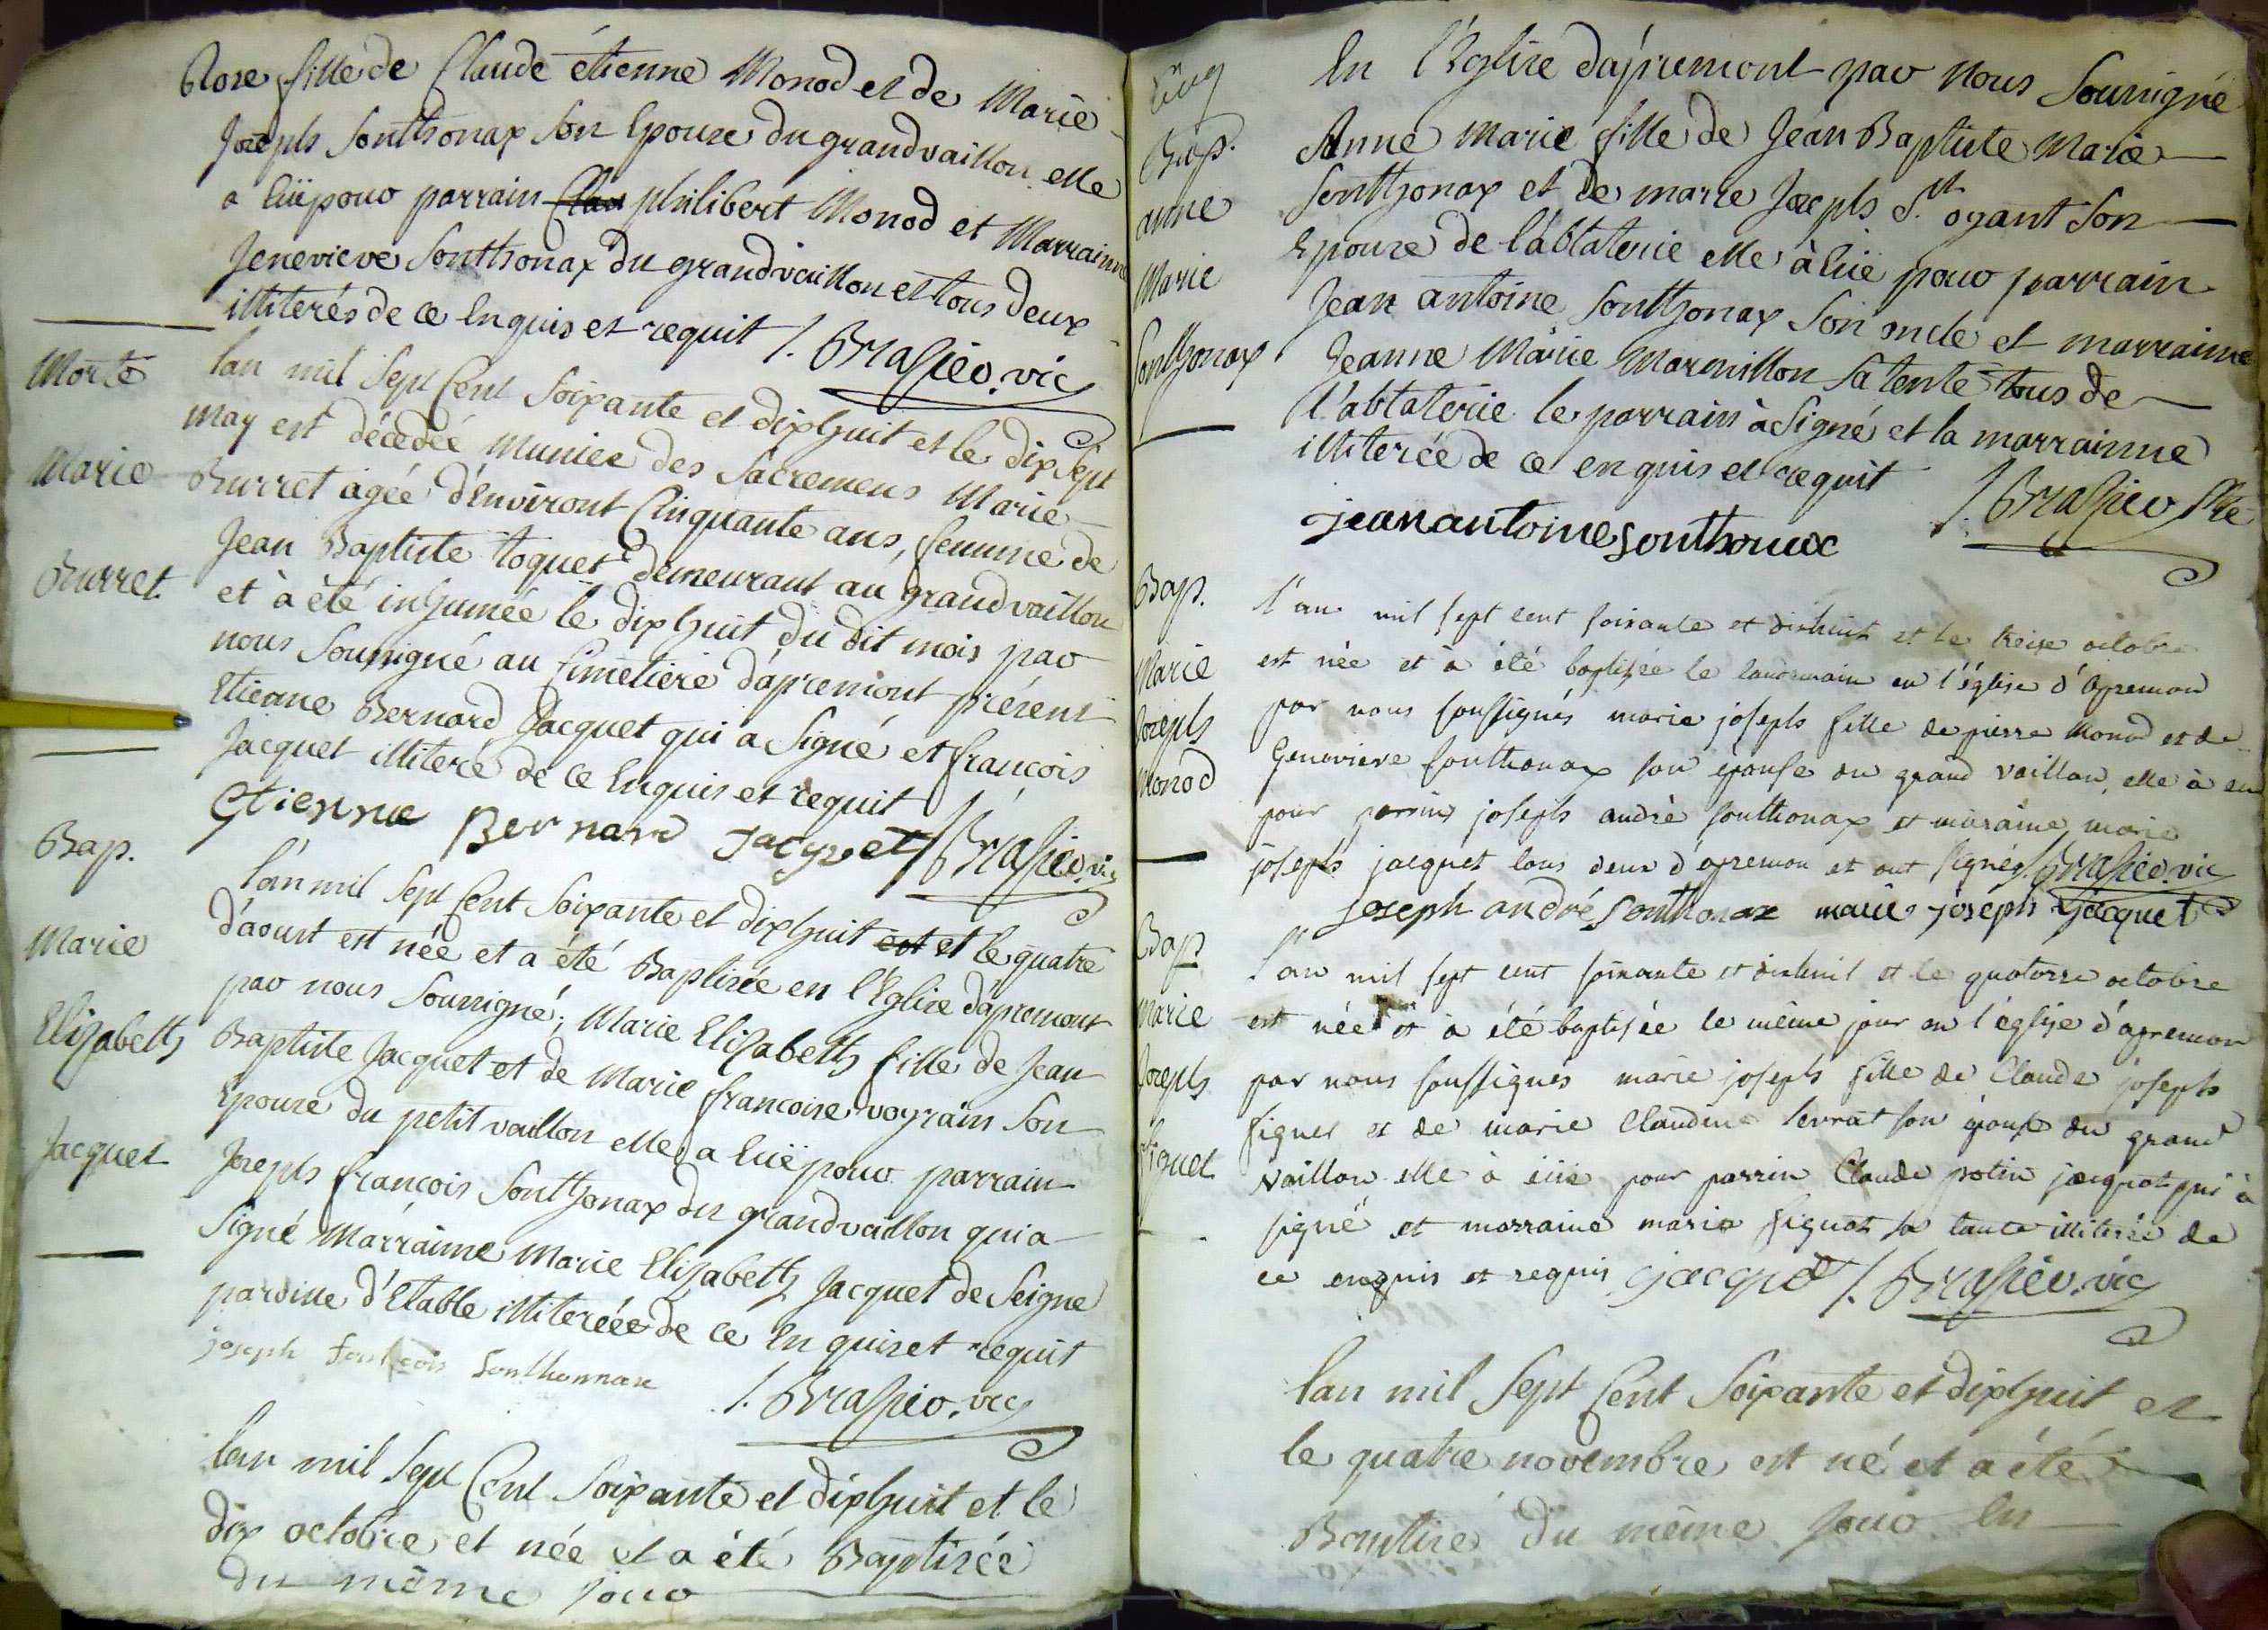 Rose fille de Claude étienne Monod et de Marie
Joseph Sonthonax son Epouse du grandvaillon elle
a Eüe pour parrain Clau philibert Monod et Marrainne
Jenevieve Sonthonax du grandvaillon et tous deux
illiterés de ce Enquis et requit /. Brasier. vic
Morte
Marie
Burret
lan mil Sept Cent Soixante et dixhuit et le dix Sept
may est décedéé Muniee des Sacremens Marie
Burret agéé d'Environt Cinquante ans, femme de
Jean Baptiste toquet demeurant au grandvaillon
et à été inhumée le dixhuit du dit mois par
nous Soussigné au Cimetiere dapremont présent
Etienne Bernard Jacquet qui a Signé et françois
Jacquet illiteré de ce Enquis et requit
Etienne Bernard Jacquet /. Brasier. vic
Bap.
Marie
Elizabeth
Jacquet
l'an mil Sept Cent Soixante et dixhuit est et le quatre
d'aoust est née et a été Baptisée en l'Eglise dapremont
par nous Soussigné; Marie Elizabeth fille de Jean
Baptiste Jacquet et de Marie francoise voyrain Son
Epouse du petit vaillon elle a Eüe pour parrain
Joseph françois Sonthonax du grandvaillon qui a
Signé Marraine Marie Elizabeth Jacquet de Seigne
paroisse d'Etable illiteréé de ce Enquis et requit
joseph francois Sonthonnax
/. Brasier. vic
lan mil Sept Cent Soixante et dixhuit et le
dix octobre et née et a été Baptisée
du même jour
Bap.
anne
Marie
Sonthonax
En l'Eglise dapremont par nous Soussigné
Anne Marie fille de Jean Baptiste Marie
Sonthonax et de marie Joseph St. oyant Son
Epouse de l'ablaterie elle à Eüe pour parrain
Jean antoine Sonthonax Son oncle et marrainne
Jeanne Marie Marmillon Sa tente tous de
l'ablaterie le parrain à Signé et la marrainne
illiterée de ce enquis et requit
/. Brasier
jean antoine Sonthonax
Bap.
Marie
Joseph
Monod
l'an mil sept cent soixante et dixhuit et le treize octobre
est née et à été baptisée le landemain en l'église d'apremon
par nous soussignés marie joseph fille de pierre Monod et de
Genevieve sonthonax son épouse du grand vaillon, elle à eu
pour parrin joseph andré sonthonax et maraine marie
joseph jacquet tous deux d'apremon et ont signés /. Brasier. vic
joseph andré Sonthonax marie joseph jacquet
Bap
Marie
Joseph
figuet
l'an mil sept cent soixante et dixhuit et le quatorze octobre
est née et à été baptisée le même jour en l'église d'apremon
par nous soussignés marie joseph fille de Claude joseph
figuet et de marie Claudine levrat son épouse du grand
vaillon elle à eüe pour parrin Claude jacquet qui à
signé et marraine marie figuet sa tante illiterée de
ce enquis et requis jacquet /. Brasier. vic
lan mil Sept Cent Soixante et dixhuit et
le quatre novembre est né et a été
Baptisé du même jour En